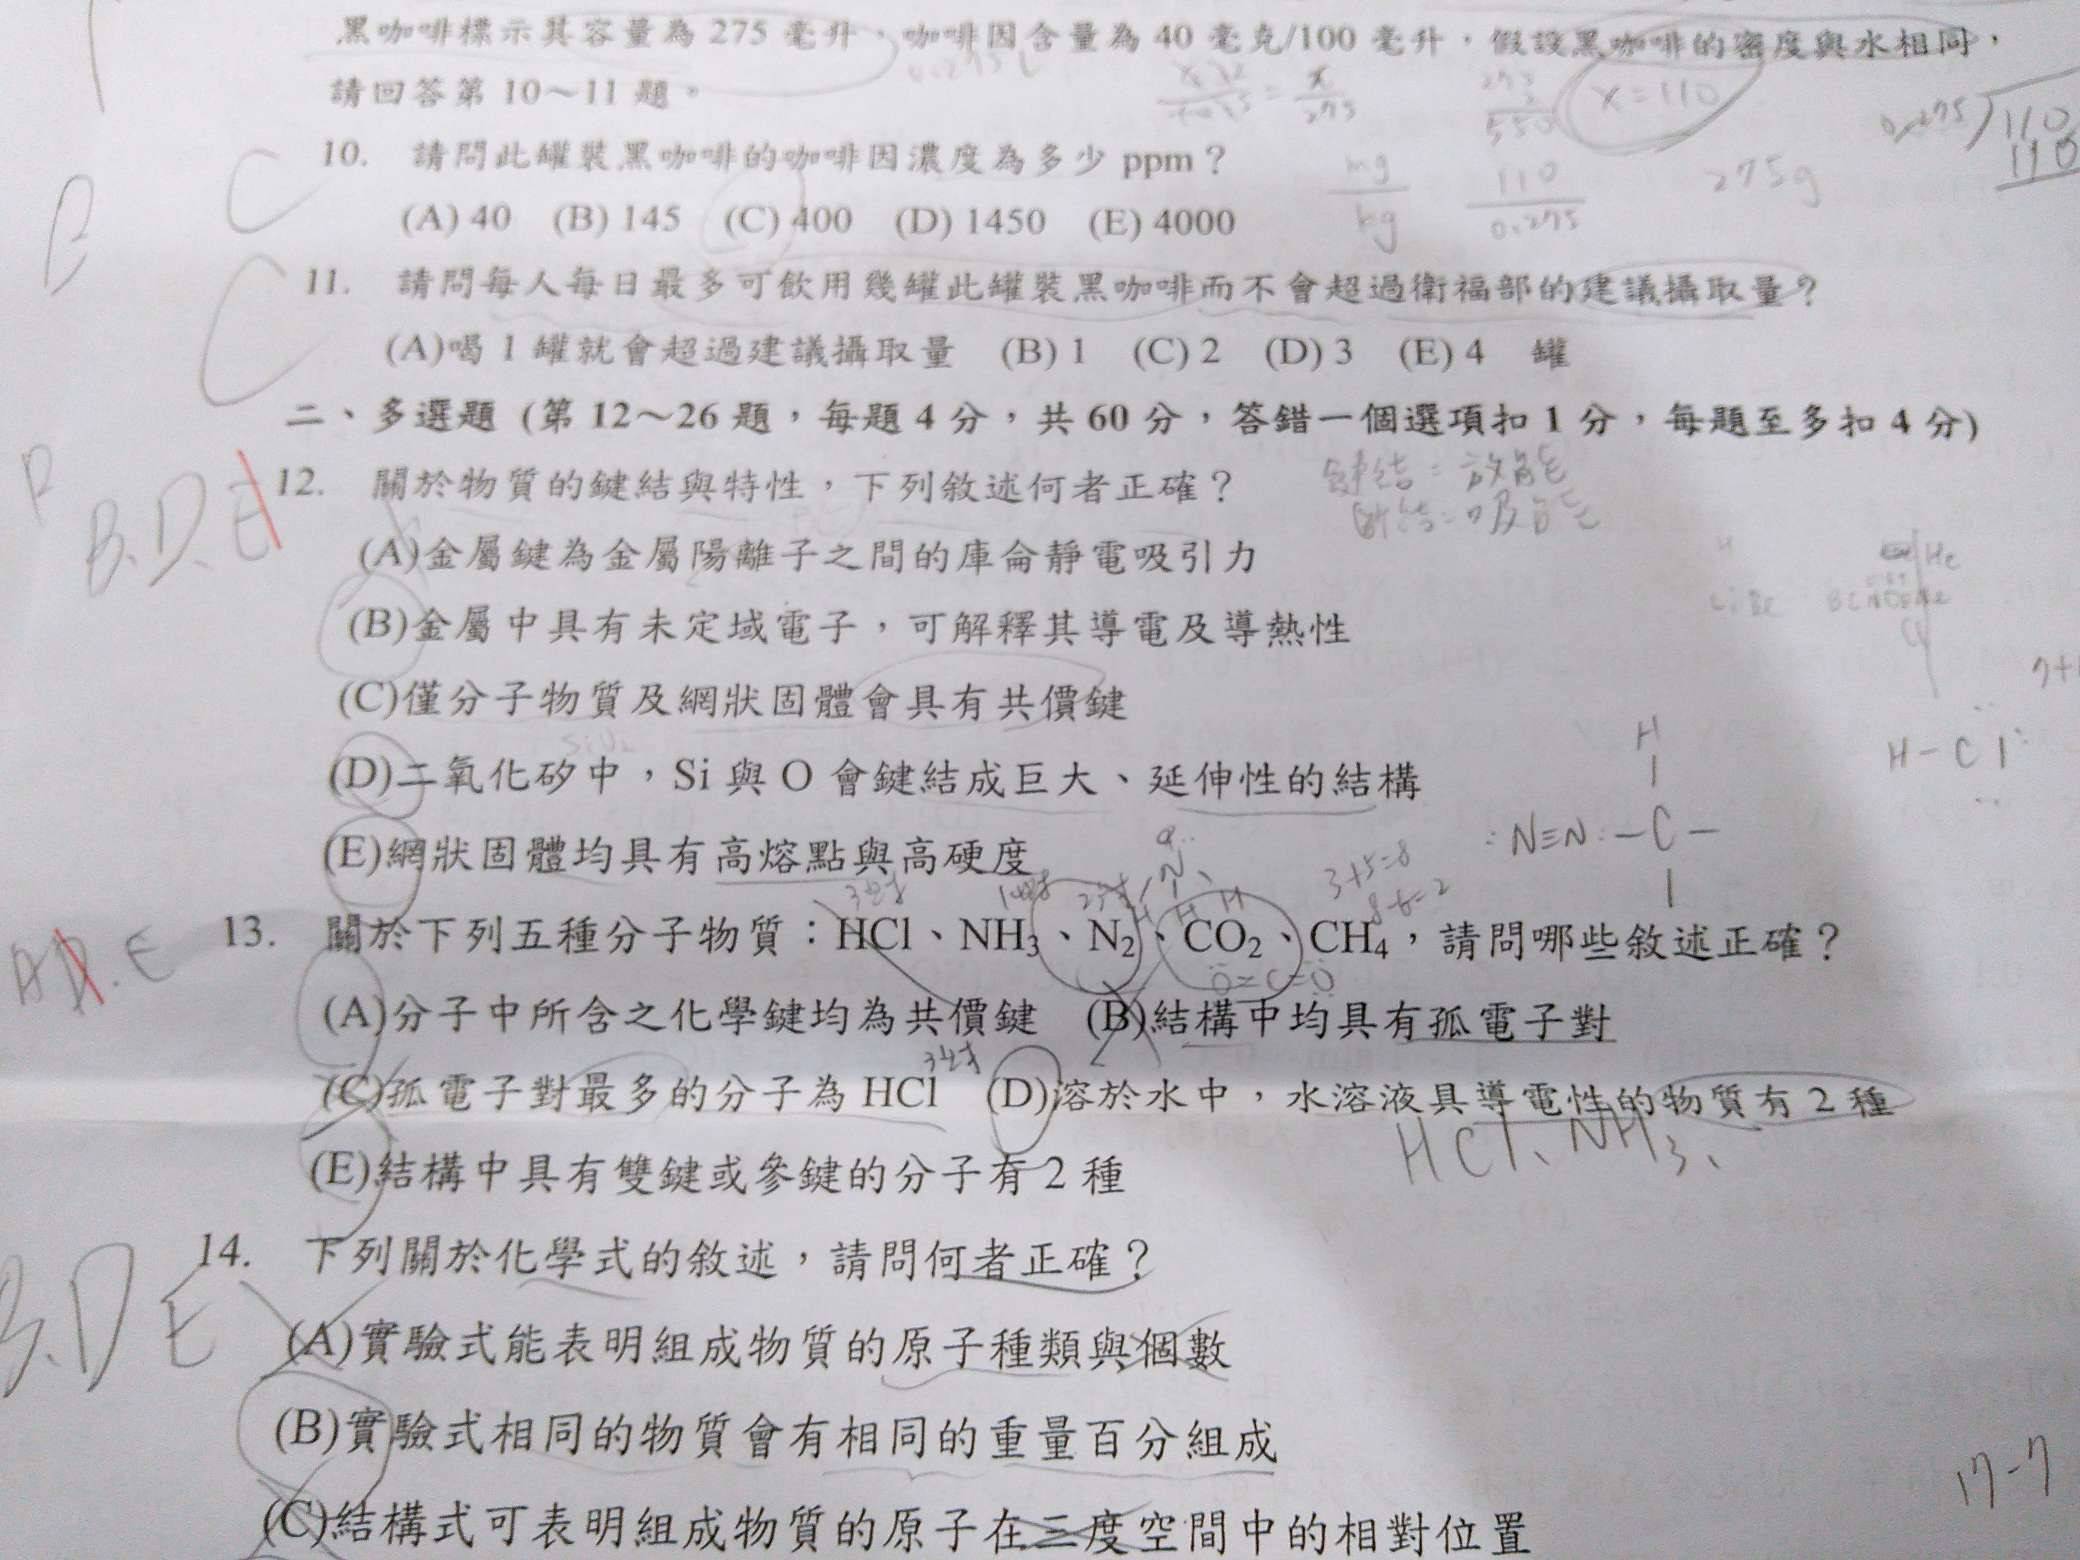 黑咖啡標示其容量為 275 毫升，咖啡因含量為 40 毫克/100 毫升，假設黑咖啡的密度與水相同，
0.275 L
請回答第 10～11 題。
x = 110
0.275 110
110
C
10. 請問此罐裝黑咖啡的咖啡因濃度為多少 ppm？
mg
kg
110
0.275
275g
(A) 40 (B) 145 (C) 400 (D) 1450 (E) 4000
C
11. 請問每人每日最多可飲用幾罐此罐裝黑咖啡而不會超過衛福部的建議攝取量？
(A)喝 1 罐就會超過建議攝取量 (B) 1 (C) 2 (D) 3 (E) 4 罐
二、多選題 (第 12～26 題，每題 4 分，共 60 分，答錯一個選項扣 1 分，每題至多扣 4 分)
B.D.E
12. 關於物質的鍵結與特性，下列敘述何者正確？
鍵結=放能
斷結=吸能
(A)金屬鍵為金屬陽離子之間的庫侖靜電吸引力
(B)金屬中具有未定域電子，可解釋其導電及導熱性
(C)僅分子物質及網狀固體會具有共價鍵
SiO2
(D)二氧化矽中，Si 與 O 會鍵結成巨大、延伸性的結構
H-Cl
(E)網狀固體均具有高熔點與高硬度
:N≡N:
H
-C-
3+5=8
8-6=2
3對 1對 2對
A D.E
13. 關於下列五種分子物質：HCl、NH3、N2、CO2、CH4，請問哪些敘述正確？
O=C=O
(A)分子中所含之化學鍵均為共價鍵 (B)結構中均具有孤電子對
3對
(C)孤電子對最多的分子為 HCl (D)溶於水中，水溶液具導電性的物質有 2 種
HCl、NH3、
(E)結構中具有雙鍵或參鍵的分子有 2 種
B.D E
14. 下列關於化學式的敘述，請問何者正確？
(A)實驗式能表明組成物質的原子種類與個數
(B)實驗式相同的物質會有相同的重量百分組成
17-7
(C)結構式可表明組成物質的原子在三度空間中的相對位置